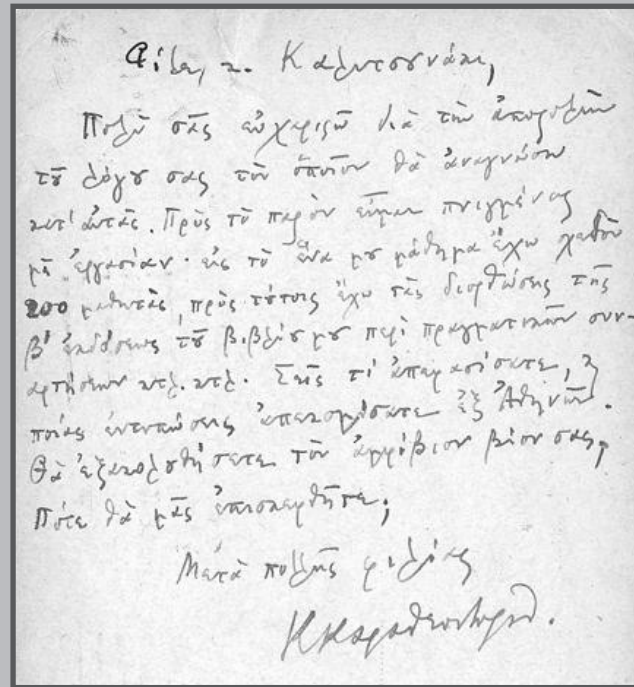 Φίλε κ. Καλιτσουνάκι,
Πολὺ σᾶς εὐχαριστῶ διὰ τὴν ἀποστολὴν
τοῦ λόγου σας τὸν ὁποῖον θὰ ἀναγνώσω
κατ' αὐτάς. Πρὸς τὸ παρὸν εἶμαι πνιγμένος
μὲ ἐργασίαν· εἰς τὸ ἕνα μου μάθημα ἔχω σχεδὸν
200 μαθητάς, πρὸς τούτοις ἔχω τὰς διορθώσεις τῆς
β' ἐκδόσεως τοῦ βιβλίου μου περὶ πραγματικῶν συν-
αρτήσεων κτλ. κτλ. Σεῖς τί ἀπεφασίσατε,
ποίας ἐντυπώσεις ἀπεκομίσατε ἐξ Ἀθηνῶν.
Θὰ ἐξακολουθήσετε τὸν ἀμφίβιον βίον σας;
Πότε θὰ μᾶς ἐπισκεφθῆτε;
Μετὰ πολλῆς φιλίας
Κ Καραθεοδωρῆ.